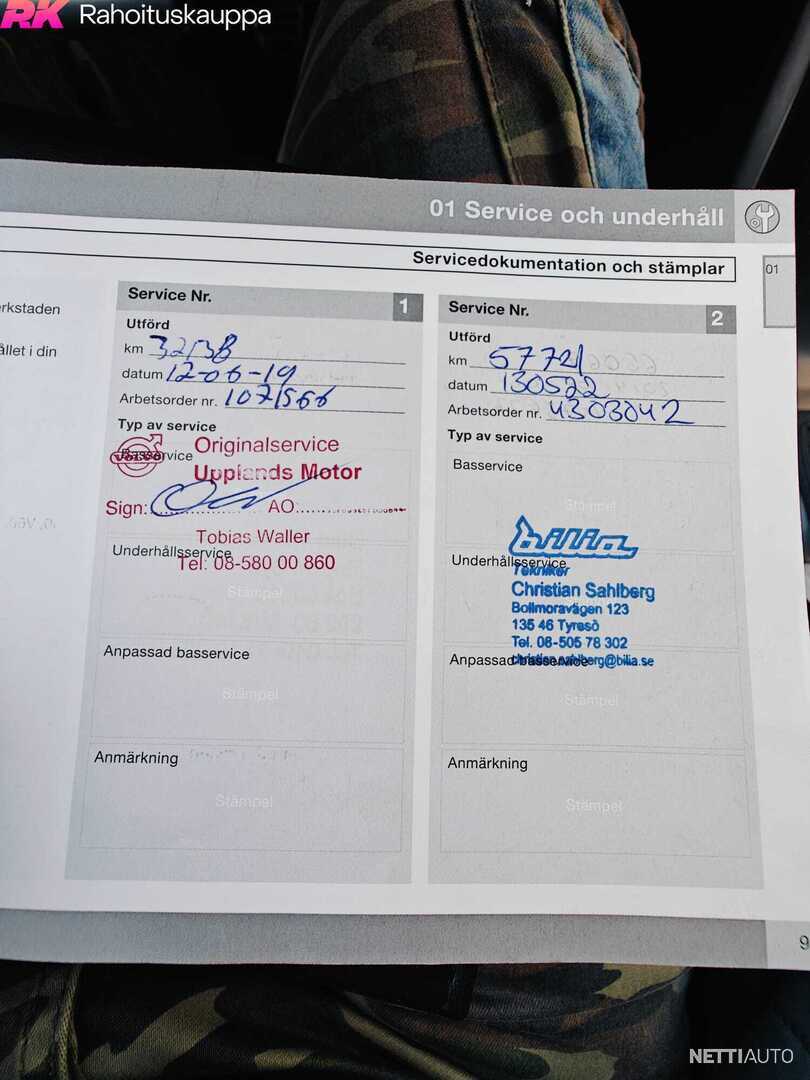 RK Rahoituskauppa
01 Service och underhåll
Servicedokumentation och stämplar
01
rkstaden
ållet i din
Service Nr. 1
Utförd
km 32138
datum 12-06-19
Arbetsorder nr. 1071566
Typ av service
Basservice
VOLVO
Originalservice
Upplands Motor
Sign: AO:
Tobias Waller
Tel: 08-580 00 860
Underhållsservice
Stämpel
Anpassad basservice
Stämpel
Anmärkning
Stämpel
Service Nr. 2
Utförd
km 57721
datum 130522
Arbetsorder nr. 4303042
Typ av service
Basservice
Stämpel
bilia
Underhållsservice
Tekniker
Christian Sahlberg
Bollmoravägen 123
135 46 Tyresö
Tel. 08-505 78 302
christian.sahlberg@bilia.se
Anpassad basservice
Stämpel
Anmärkning
Stämpel
9
NETTIAUTO